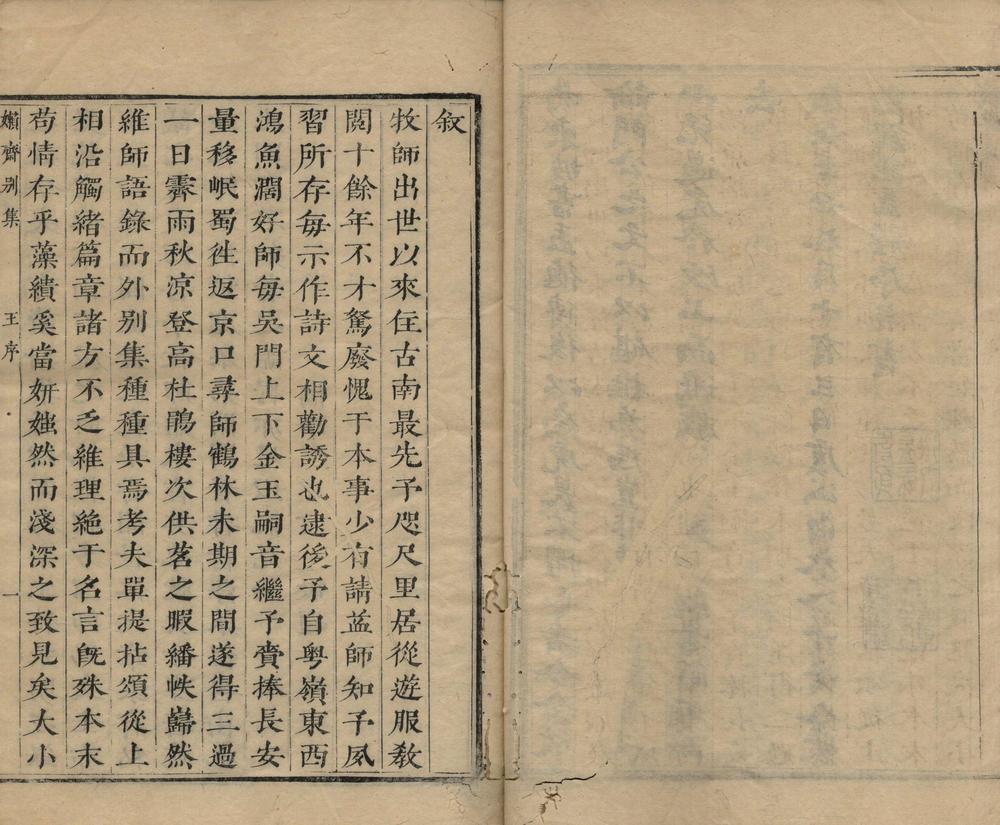 敘
牧師出世以來住古南最先予咫尺里居從遊服教
閱十餘年不才駑廢愧于本事少有請益師知予夙
習所存每示作詩文相勸誘也逮後予自粵嶺東西
鴻魚濶好師每吳門上下金玉嗣音繼予賫捧長安
量移岷蜀徃返京口尋師鶴林未期之間遂得三過
一日霽雨秋凉登高杜鵑樓次供茗之暇繙帙巋然
維師語錄而外别集種種具焉考夫單提拈頌從上
相沿觸緒篇章諸方不乏維理絶于名言旣殊本末
苟情存乎藻繢奚當妍媸然而淺深之致見矣大小
嬾齋别集 王序 一